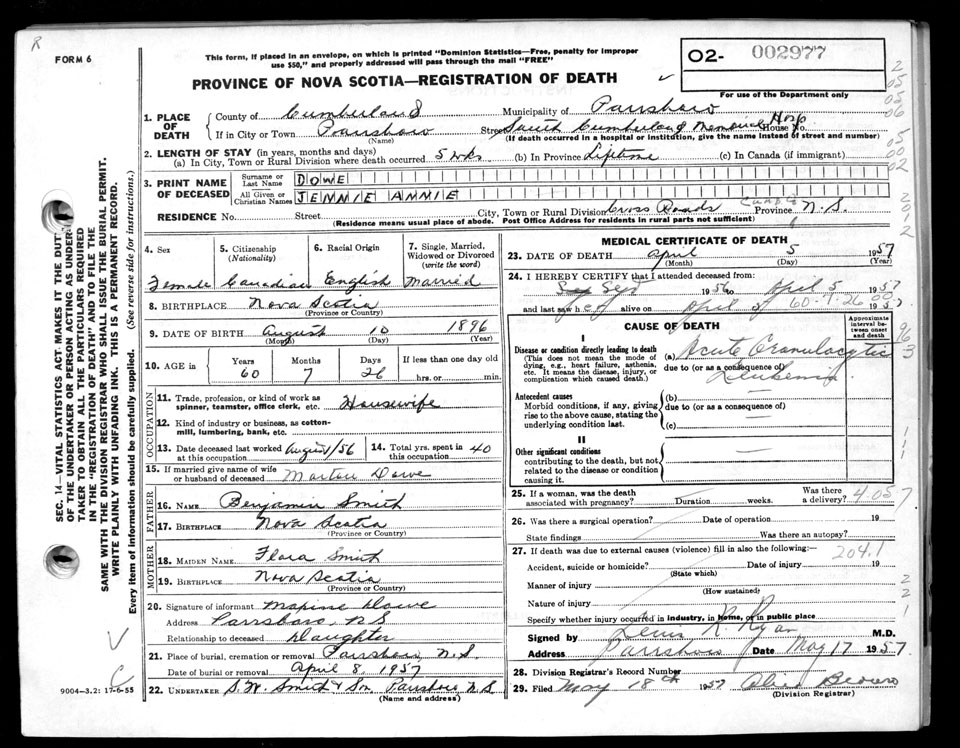 R
FORM 6
This form, if placed in an envelope, on which is printed "Dominion Statistics—Free, penalty for improper
use $50," and properly addressed will pass through the mail "FREE"
PROVINCE OF NOVA SCOTIA—REGISTRATION OF DEATH
02- 002977
For use of the Department only
1. PLACE OF DEATH
County of Cumberland Municipality of Parrsboro
If in City or Town Parrsboro Street South Cumberland Memorial Hosp House No.
(Name) (If death occurred in a hospital or institution, give the name instead of street and number)
2. LENGTH OF STAY (in years, months and days)
(a) In City, Town or Rural Division where death occurred 5 wks (b) In Province Lifetime (c) In Canada (if immigrant)
3. PRINT NAME OF DECEASED
Surname or Last Name DOWE
All Given or Christian Names JENNIE ANNIE
RESIDENCE No. Street City, Town or Rural Division Cross Roads Cumb Co Province N.S.
(Residence means usual place of abode. Post Office Address for residents in rural parts not sufficient)
4. Sex 5. Citizenship (Nationality) 6. Racial Origin 7. Single, Married, Widowed or Divorced (write the word)
Female Canadian English Married
8. BIRTHPLACE Nova Scotia
(Province or Country)
9. DATE OF BIRTH August 10 1896
(Month) (Day) (Year)
10. AGE in Years Months Days If less than one day old
60 7 26 hrs. or min.
OCCUPATION
11. Trade, profession, or kind of work as
spinner, teamster, office clerk, etc. Housewife
12. Kind of industry or business, as cotton-
mill, lumbering, bank, etc.
13. Date deceased last worked at this occupation August/56 14. Total yrs. spent in this occupation 40
15. If married give name of wife
or husband of deceased Dowe
FATHER
16. NAME Benjamin Smith
17. BIRTHPLACE Nova Scotia
(Province or Country)
MOTHER
18. MAIDEN NAME Flora Smith
19. BIRTHPLACE Nova Scotia
(Province or Country)
20. Signature of informant Maxine Dowe
Address Parrsboro, N.S.
Relationship to deceased Daughter
21. Place of burial, cremation or removal Parrsboro, N.S.
Date of burial or removal April 8, 1957
22. UNDERTAKER S.W. Smith & Son Parrsboro, N.S.
(Name and address)
9004—3.2: 17-6-55
MEDICAL CERTIFICATE OF DEATH
23. DATE OF DEATH April 5 1957
(Month) (Day) (Year)
24. I HEREBY CERTIFY that I attended deceased from:
Sept 1956 to April 5 1957
and last saw her alive on April 5 1957
60-7-26 00
CAUSE OF DEATH
Approximate interval between onset and death
I
Disease or condition directly leading to death
(This does not mean the mode of
dying, e.g., heart failure, asthenia,
etc. It means the disease, injury, or
complication which caused death.)
(a) Acute Granulocytic
due to (or as a consequence of)
Leukemia
Antecedent causes
Morbid conditions, if any, giving
rise to the above cause, stating the
underlying condition last.
(b)
due to (or as a consequence of)
(c)
II
Other significant conditions
contributing to the death, but not
related to the disease or condition
causing it.
25. If a woman, was the death
associated with pregnancy? Duration weeks. Was there a delivery?
4057
26. Was there a surgical operation? Date of operation 19
State findings Was there an autopsy?
27. If death was due to external causes (violence) fill in also the following:—
204.1
Accident, suicide or homicide? Date of injury 19
(State which)
Manner of injury
(How sustained)
Nature of injury
Specify whether injury occurred in Industry, in Home, or in public place
Signed by R. Ryan M.D.
Address Parrsboro Date May 17 1957
28. Division Registrar's Record Number
29. Filed May 18th 1957
(Division Registrar)
SEC. 14—VITAL STATISTICS ACT MAKES IT THE DUTY
OF THE UNDERTAKER OR PERSON ACTING AS UNDER-
TAKER TO OBTAIN ALL THE PARTICULARS REQUIRED
IN THE "REGISTRATION OF DEATH" AND TO FILE THE
SAME WITH THE DIVISION REGISTRAR WHO SHALL ISSUE THE BURIAL PERMIT.
WRITE PLAINLY WITH UNFADING INK. THIS IS A PERMANENT RECORD.
Every item of information should be carefully supplied. (See reverse side for instructions.)